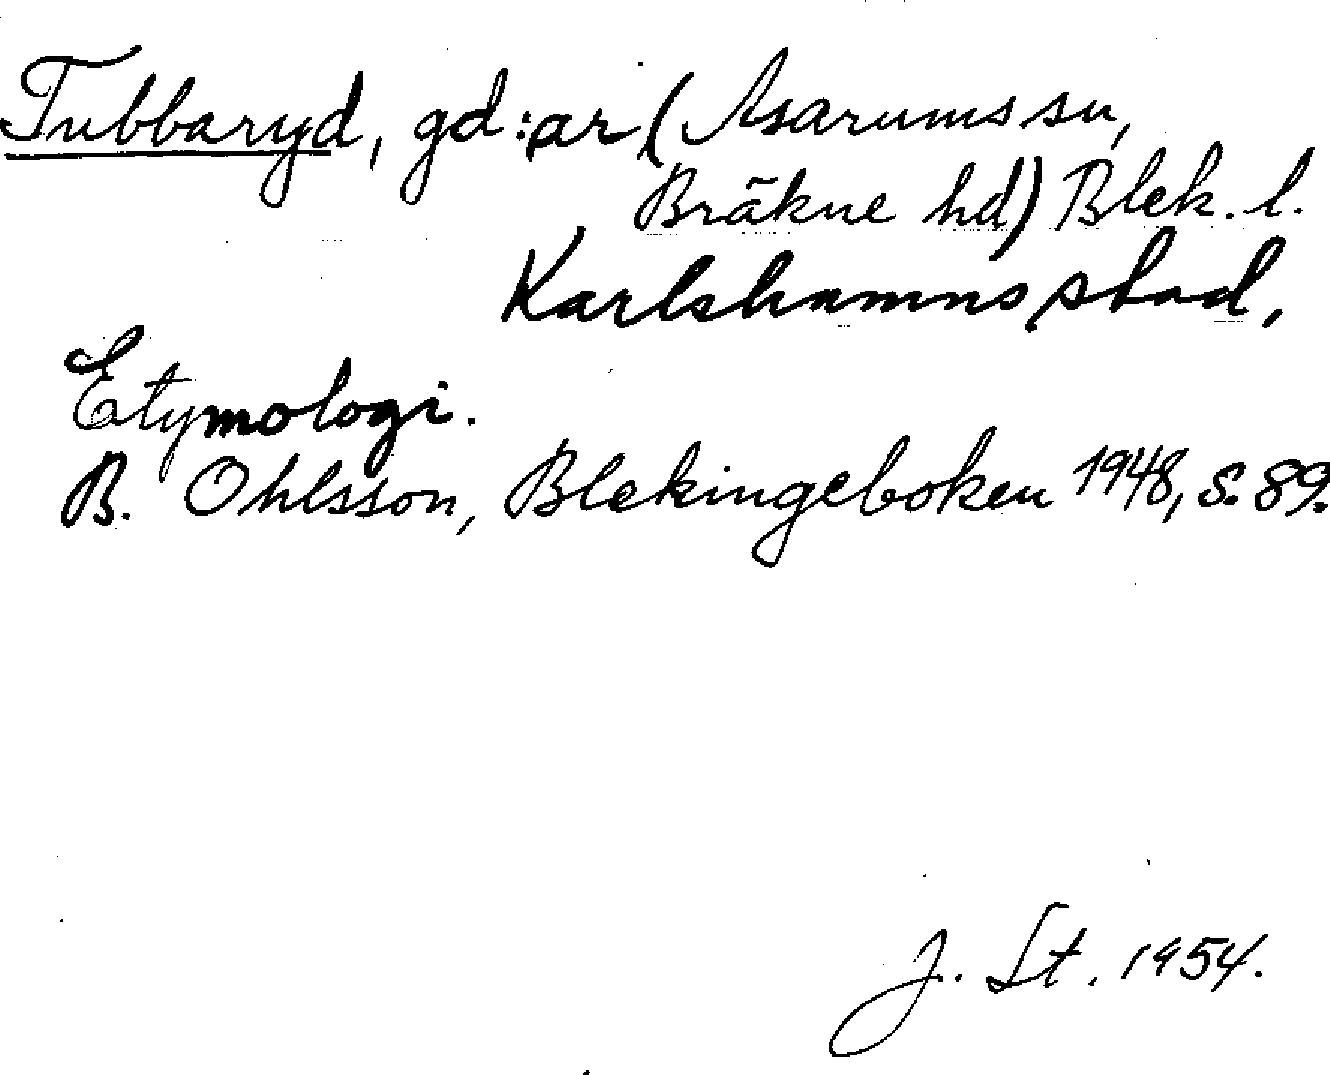 Tubbaryd, gd:ar (Asarums sn,
Bräkne hd) Blek. l.
Karlshamns stad,
Etymologi.
B. Ohlsson, Blekingeboken 1948, s. 89.
J. St. 1954.